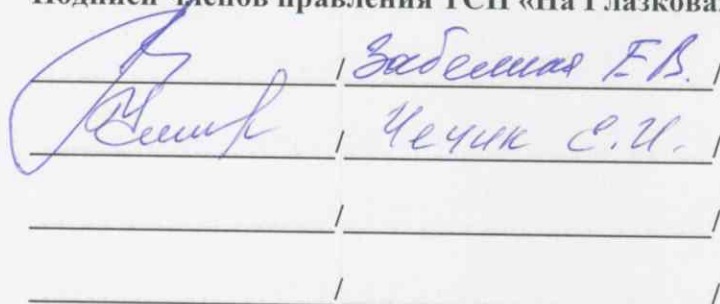 Подписи членов правления ТСН «На Глазкова
/ Забелная Е.В. /
/ Чечик С.И. /
/ /
/ /